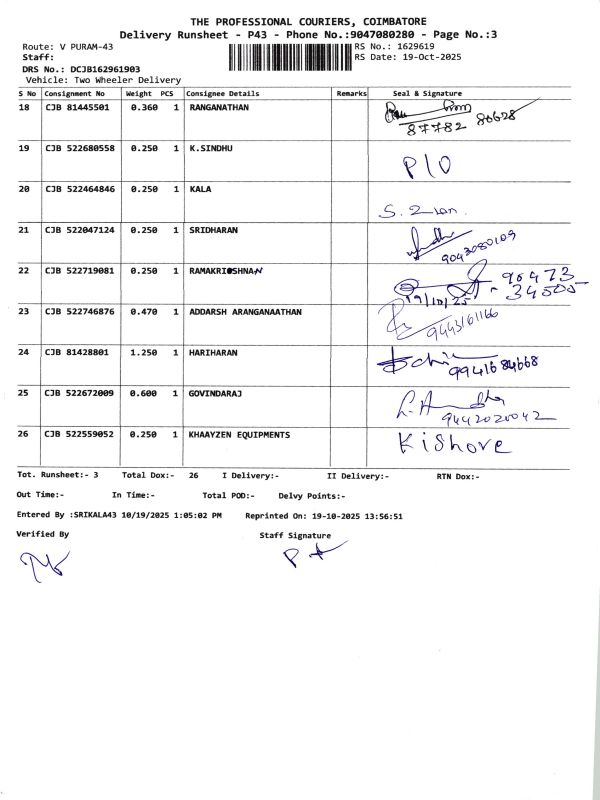 THE PROFESSIONAL COURIERS, COIMBATORE
Delivery Runsheet - P43 - Phone No.:9047080280 - Page No.:3
Route: V PURAM-43 RS No.: 1629619
Staff: RS Date: 19-Oct-2025
DRS No.: DCJB162961903
Vehicle: Two Wheeler Delivery
S No Consignment No Weight PCS Consignee Details Remarks Seal & Signature
18 CJB 81445501 0.360 1 RANGANATHAN
87782 80628
19 CJB 522680558 0.250 1 K.SINDHU P/O
20 CJB 522464846 0.250 1 KALA S.
21 CJB 522047124 0.250 1 SRIDHARAN
9042080109
22 CJB 522719081 0.250 1 RAMAKRISHNAN 90473
19/10/25 - 34505
23 CJB 522746876 0.470 1 ADDARSH ARANGANAATHAN
9443161166
24 CJB 81428801 1.250 1 HARIHARAN
9941684668
25 CJB 522672009 0.600 1 GOVINDARAJ
9442020042
26 CJB 522559052 0.250 1 KHAAYZEN EQUIPMENTS Kishore
Tot. Runsheet:- 3 Total Dox:- 26 I Delivery:- II Delivery:- RTN Dox:-
Out Time:- In Time:- Total POD:- Delvy Points:-
Entered By :SRIKALA43 10/19/2025 1:05:02 PM Reprinted On: 19-10-2025 13:56:51
Verified By Staff Signature